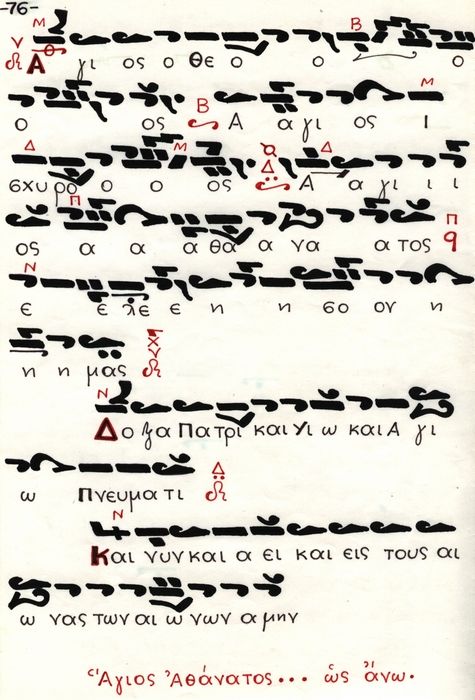 -76-
Μ Β
ν Α γι ος ο Θε ο ο ο
ο ος Β Α α γι ος Ι Μ
Δ Μ Δ Δ
σχυ ρο ο ο ος Α α γι ι ι
Π
ος α α α θα α να α τος Π q
Ν
ε ε λε ε η η σο ον η
η η μας
Ν
Δο ξα Πατρι και Υι ω και Α γι
ω Πνευμα τι Δ
Ν
Και νυν και α ει και εις τους αι
ω νας των αι ω νων α μην
Ἅγιος Ἀθάνατος... ὡς ἄνω.